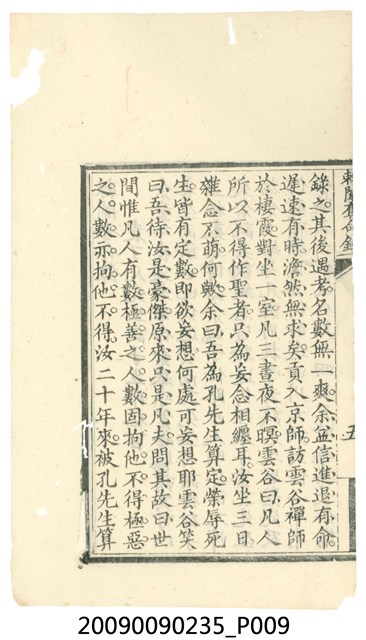 錄之其後遇考名數無一爽余益信進退有命
遲速有時澹然無求矣貢入京師訪雲谷禪師
於棲霞對坐一室凡三晝夜不暝雲谷曰凡人
所以不得作聖者只為妄念相纏耳汝坐三日
雜念不萌何歟余曰吾為孔先生算定榮辱死
生皆有定數即欲妄想何處可妄想耶雲谷笑
曰吾待汝是豪傑原來只是凡夫問其故曰世
間惟凡人有數極善之人數固拘他不得極惡
之人數亦拘他不得汝二十年來被孔先生算
20090090235_P009